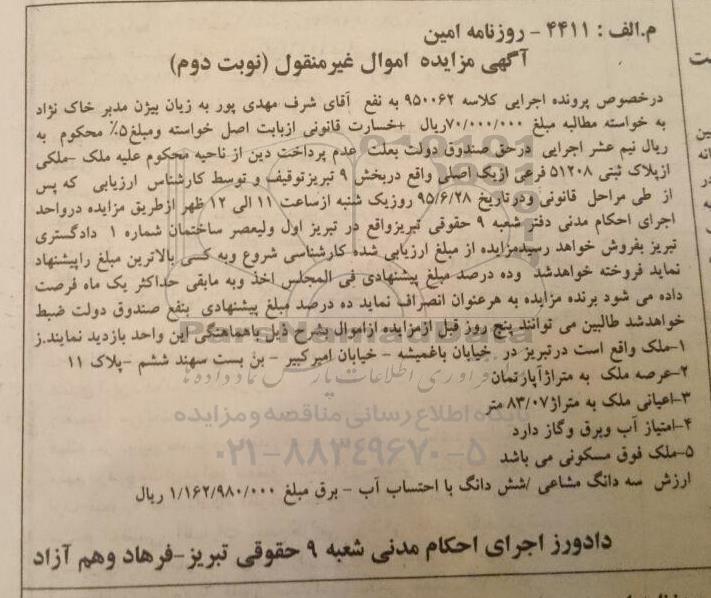 م.الف : ۴۴۱۱ - روزنامه امین
آگهی مزایده اموال غیرمنقول (نوبت دوم)
درخصوص پرونده اجرایی کلاسه ۹۵۰۰۶۲ به نفع آقای شرف مهدی پور به زیان بیژن مدبر خاک نژاد
به خواسته مطالبه مبلغ ۷۰/۰۰۰/۰۰۰ریال +خسارت قانونی ازبابت اصل خواسته ومبلغ۵٪ محکوم به
ریال نیم عشر اجرایی درحق صندوق دولت بعلت عدم پرداخت دین از ناحیه محکوم علیه ملک -ملکی
ازپلاک ثبتی ۵۱۲۰۸ فرعی ازیک اصلی واقع دربخش ۹ تبریزتوقیف و توسط کارشناس ارزیابی که پس
از طی مراحل قانونی ودرتاریخ ۹۵/۶/۲۸ روزیک شنبه ازساعت ۱۱ الی ۱۲ ظهر ازطریق مزایده درواحد
اجرای احکام مدنی دفتر شعبه ۹ حقوقی تبریزواقع در تبریز اول ولیعصر ساختمان شماره ۱ دادگستری
تبریز بفروش خواهد رسیدمزایده از مبلغ ارزیابی شده کارشناسی شروع وبه کسی بالاترین مبلغ راپیشنهاد
نماید فروخته خواهدشد وده درصد مبلغ پیشنهادی فی المجلس اخذ وبه مابقی حداکثر یک ماه فرصت
داده می شود برنده مزایده به هرعنوان انصراف نماید ده درصد مبلغ پیشنهادی بنفع صندوق دولت ضبط
خواهدشد طالبین می توانند پنج روز قبل ازمزایده ازاموال بشرح ذیل باهماهنگی این واحد بازدید نمایند.ز
۱-ملک واقع است درتبریز در خیابان باغمیشه - خیابان امیرکبیر - بن بست سهند ششم -پلاک ۱۱
۲-عرصه ملک به متراژآپارتمان
۳-اعیانی ملک به متراژ۸۳/۰۷ متر
۴-امتیاز آب وبرق وگاز دارد
۵-ملک فوق مسکونی می باشد
ارزش سه دانگ مشاعی /شش دانگ با احتساب آب - برق مبلغ ۱/۱۶۲/۹۸۰/۰۰۰ ریال
دادورز اجرای احکام مدنی شعبه ۹ حقوقی تبریز-فرهاد وهم آزاد
ParsNamadData
فرآوری اطلاعات پارس نماد داده ها
پایگاه اطلاع رسانی مناقصه و مزایده
۰۲۱-۸۸۳۴۹۶۷۰-۵